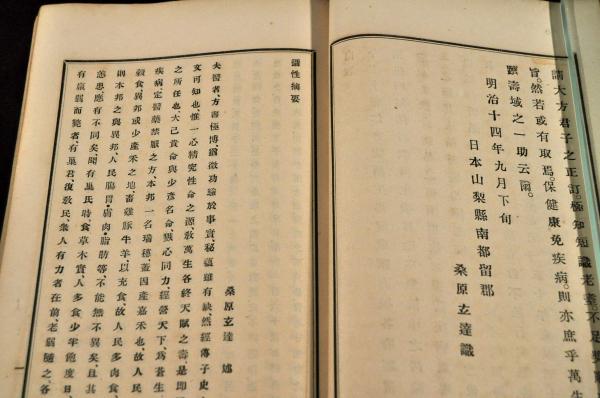 請大方君子之正訂。極知知識老婆不足要
旨。然若或有取焉。保健康免疾病。則亦庶乎萬生
躋壽域之一助云爾。
明治十四年九月下旬
日本山梨縣南都留郡
桑原玄達識
攝性摘要
桑原玄達 述
夫醫者、方書極博、猶徵功驗於事實、秘蘊雖有缺、然經傳子史
文可知也、惟一心精究性命之源、敎萬生各終天賦之壽、是即
之所任也、大己貴命與少彦名命、戮心同力、經營天下、爲蒼生
疾病、定醫藥禁厭之方、本邦一名瑞穗、蓋因產嘉禾也、故人民
穀食、異邦或少產米之地、畜雞豚牛羊、以充食、故人民多肉食、
則本邦之與異邦、人民腸胃・膚肉・脂肪等、不能無不異矣、且其
恙患應有不同矣、聞有巢氏時、食草木實、人多食少、半飽度日、
有羸弱而斃者、有巢君、復敎民、衆人有力者在前、老弱隨之、各